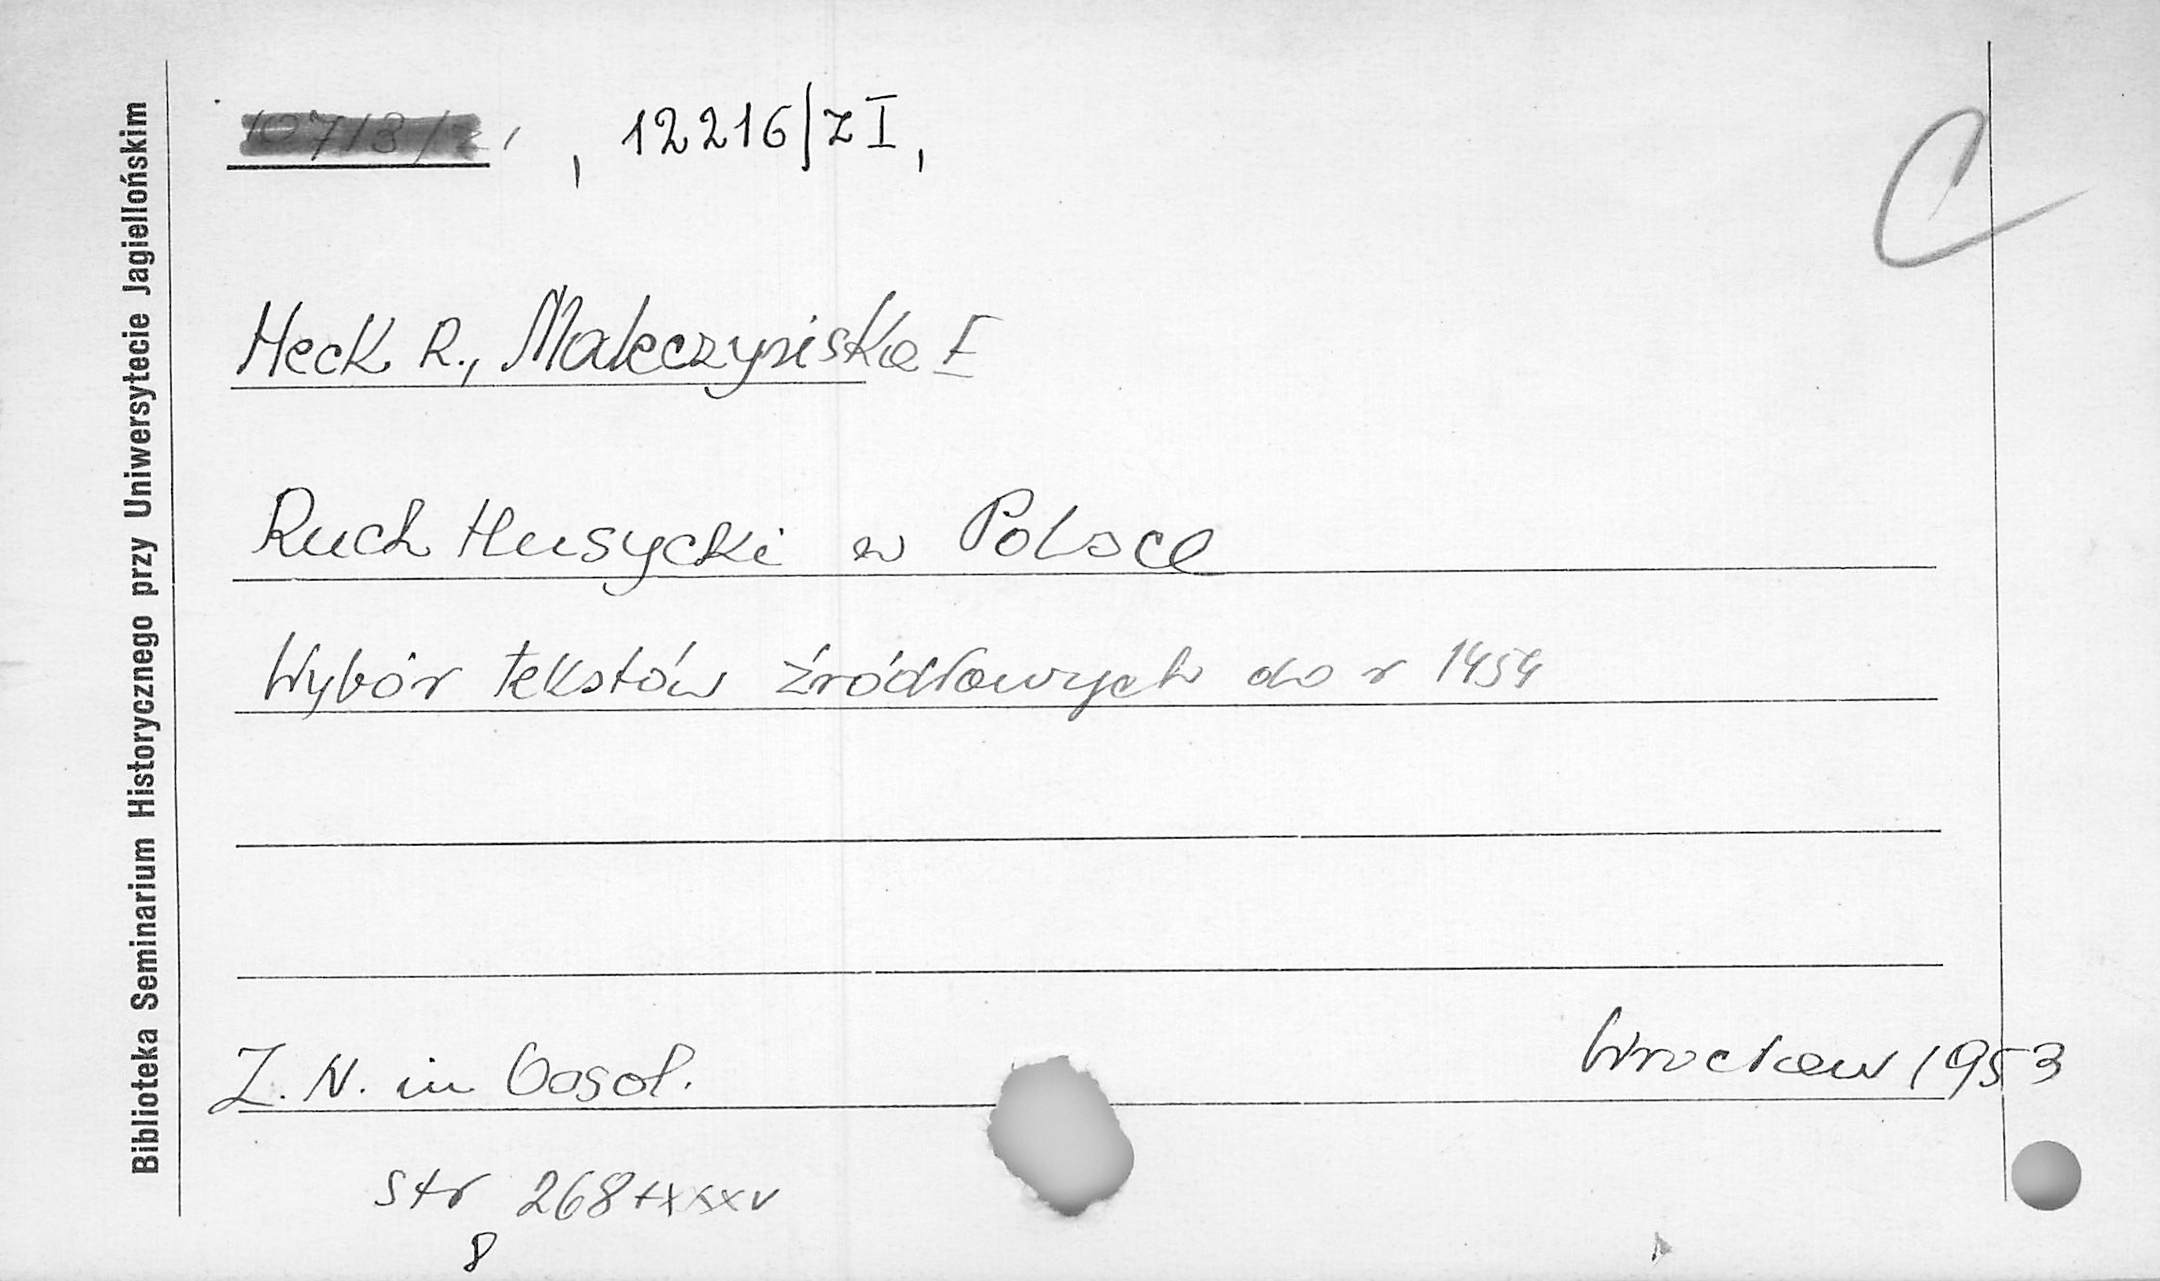 , 12216/ZI,
C
Heck R., Maleczyńska E
Ruch Husycki w Polsce
Wybór tekstów źródłowych do r 1454
Z. N. im Ossol.
Wrocław 1953
str 268+XXXV
8
Biblioteka Seminarium Historycznego przy Uniwersytecie Jagiellońskim